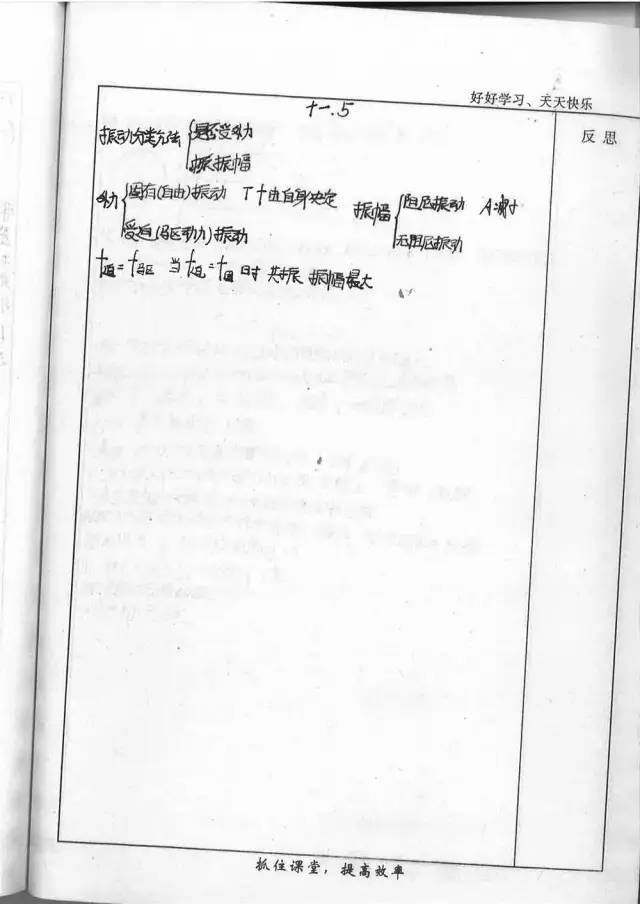 好好学习、天天快乐
十一.5
反思
振动分类方法 {是否受力
按振幅
力 {固有(自由)振动 T f由自身决定
受迫(驱动力)振动
振幅 {阻尼振动 A减小
无阻尼振动
f迫=f驱 当f迫=f固时 共振 振幅最大
抓住课堂，提高效率